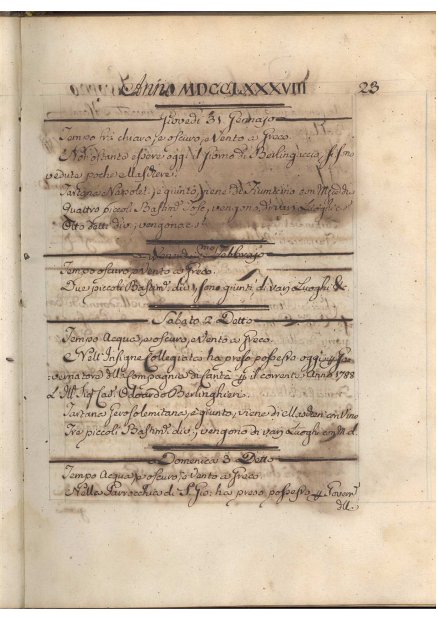 Anno MDCCLXXXVIII 23
Giovedi 31 Gennajo
Tempo tra chiaro, e oscuro, e Vento a Greco.
Nonostante essere oggi il giorno di Berlingaccio, si sono
vedute poche Maschere.
Tartana Napolet. è giunto, viene de
Quattro piccoli Bastim. Tosc., vengono di varj Luoghi
Otto detti div., vengono
Venerdi Febbrajo
Tempo oscuro, e Vento a Greco.
Due piccoli Bastim. div. sono giunti di varj Luoghi &
Sabato 2 Detto
Tempo Acqua, e oscuro, e Vento a Greco.
Nell' Insigne Collegiata ha preso possesso oggi p Go-
vernatore dlla Compagnia di Carità p il corrente Anno 1788
L' Ill. Sig. Cav. Odoardo Berlinghieri.
Tartana Jerosolemitana, è giunto, viene di con Vino
Tre piccoli Bastim. div., vengono di varj Luoghi con M. d.
Domenica 3 Detto
Tempo Acqua, e oscuro, e Vento a Greco.
Nella Parrocchia di S. Gio: ha preso possesso p Gover.
dll.